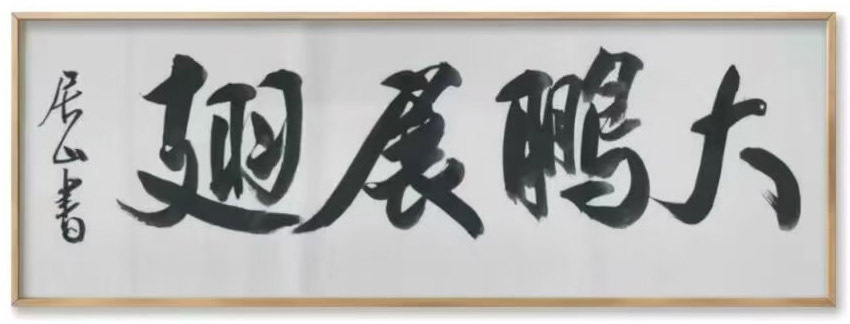 大鹏展翅
居山书